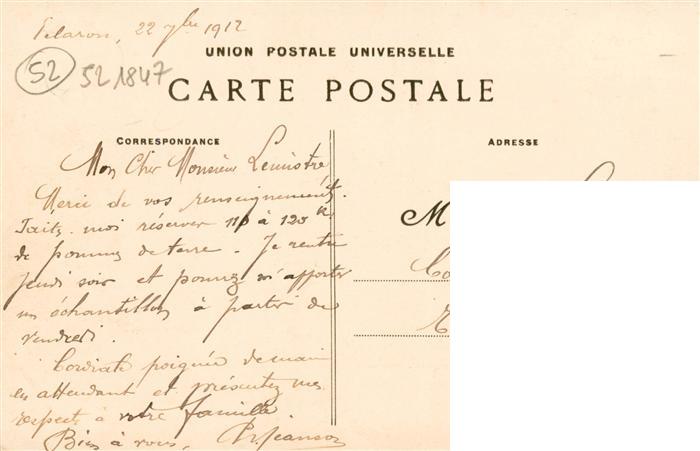 Eclaron, 22 7bre 1912
UNION POSTALE UNIVERSELLE
52
521847
CARTE POSTALE
CORRESPONDANCE
ADRESSE
Mon Cher Monsieur Lemistre
Merci de vos renseignements.
Faites moi réserver 110 à 120 k
de pommes de terre. Je rentre
jeudi soir et pourrez m'apporter
un échantillon à partir de
vendredi.
Cordiale poignée de main
en attendant et présentez mes
respects à votre famille
Bien à vous,
M